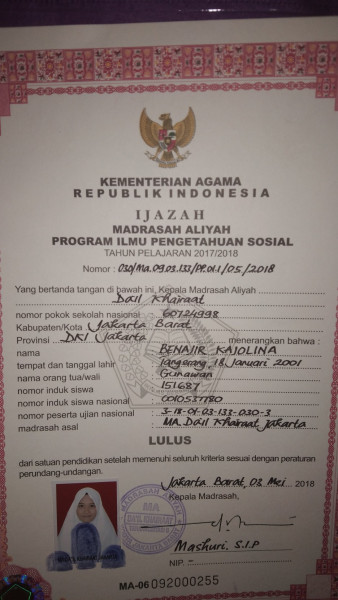 KEMENTERIAN AGAMA
REPUBLIK INDONESIA
IJAZAH
MADRASAH ALIYAH
PROGRAM ILMU PENGETAHUAN SOSIAL
TAHUN PELAJARAN 2017/2018
Nomor : 030/Ma.09.03.133/PP.01.1/05/2018
Yang bertanda tangan di bawah ini, Kepala Madrasah Aliyah
Dail Khairaat
nomor pokok sekolah nasional 60724998
Kabupaten/Kota Jakarta Barat
Provinsi DKI Jakarta menerangkan bahwa :
nama BENAJIR KAJOLINA
tempat dan tanggal lahir Tangerang, 18 Januari 2001
nama orang tua/wali Gunawan
nomor induk siswa 151687
nomor induk siswa nasional 0010537780
nomor peserta ujian nasional 3-18-01-03-133-030-3
madrasah asal MA. Dail Khairaat Jakarta
LULUS
dari satuan pendidikan setelah memenuhi seluruh kriteria sesuai dengan peraturan
perundang-undangan.
Jakarta Barat, 03 Mei 2018
Kepala Madrasah,
MADRASAH ALIYAH
MA
Mashuri, S.I.P
NIP. -
MA-06 092000255